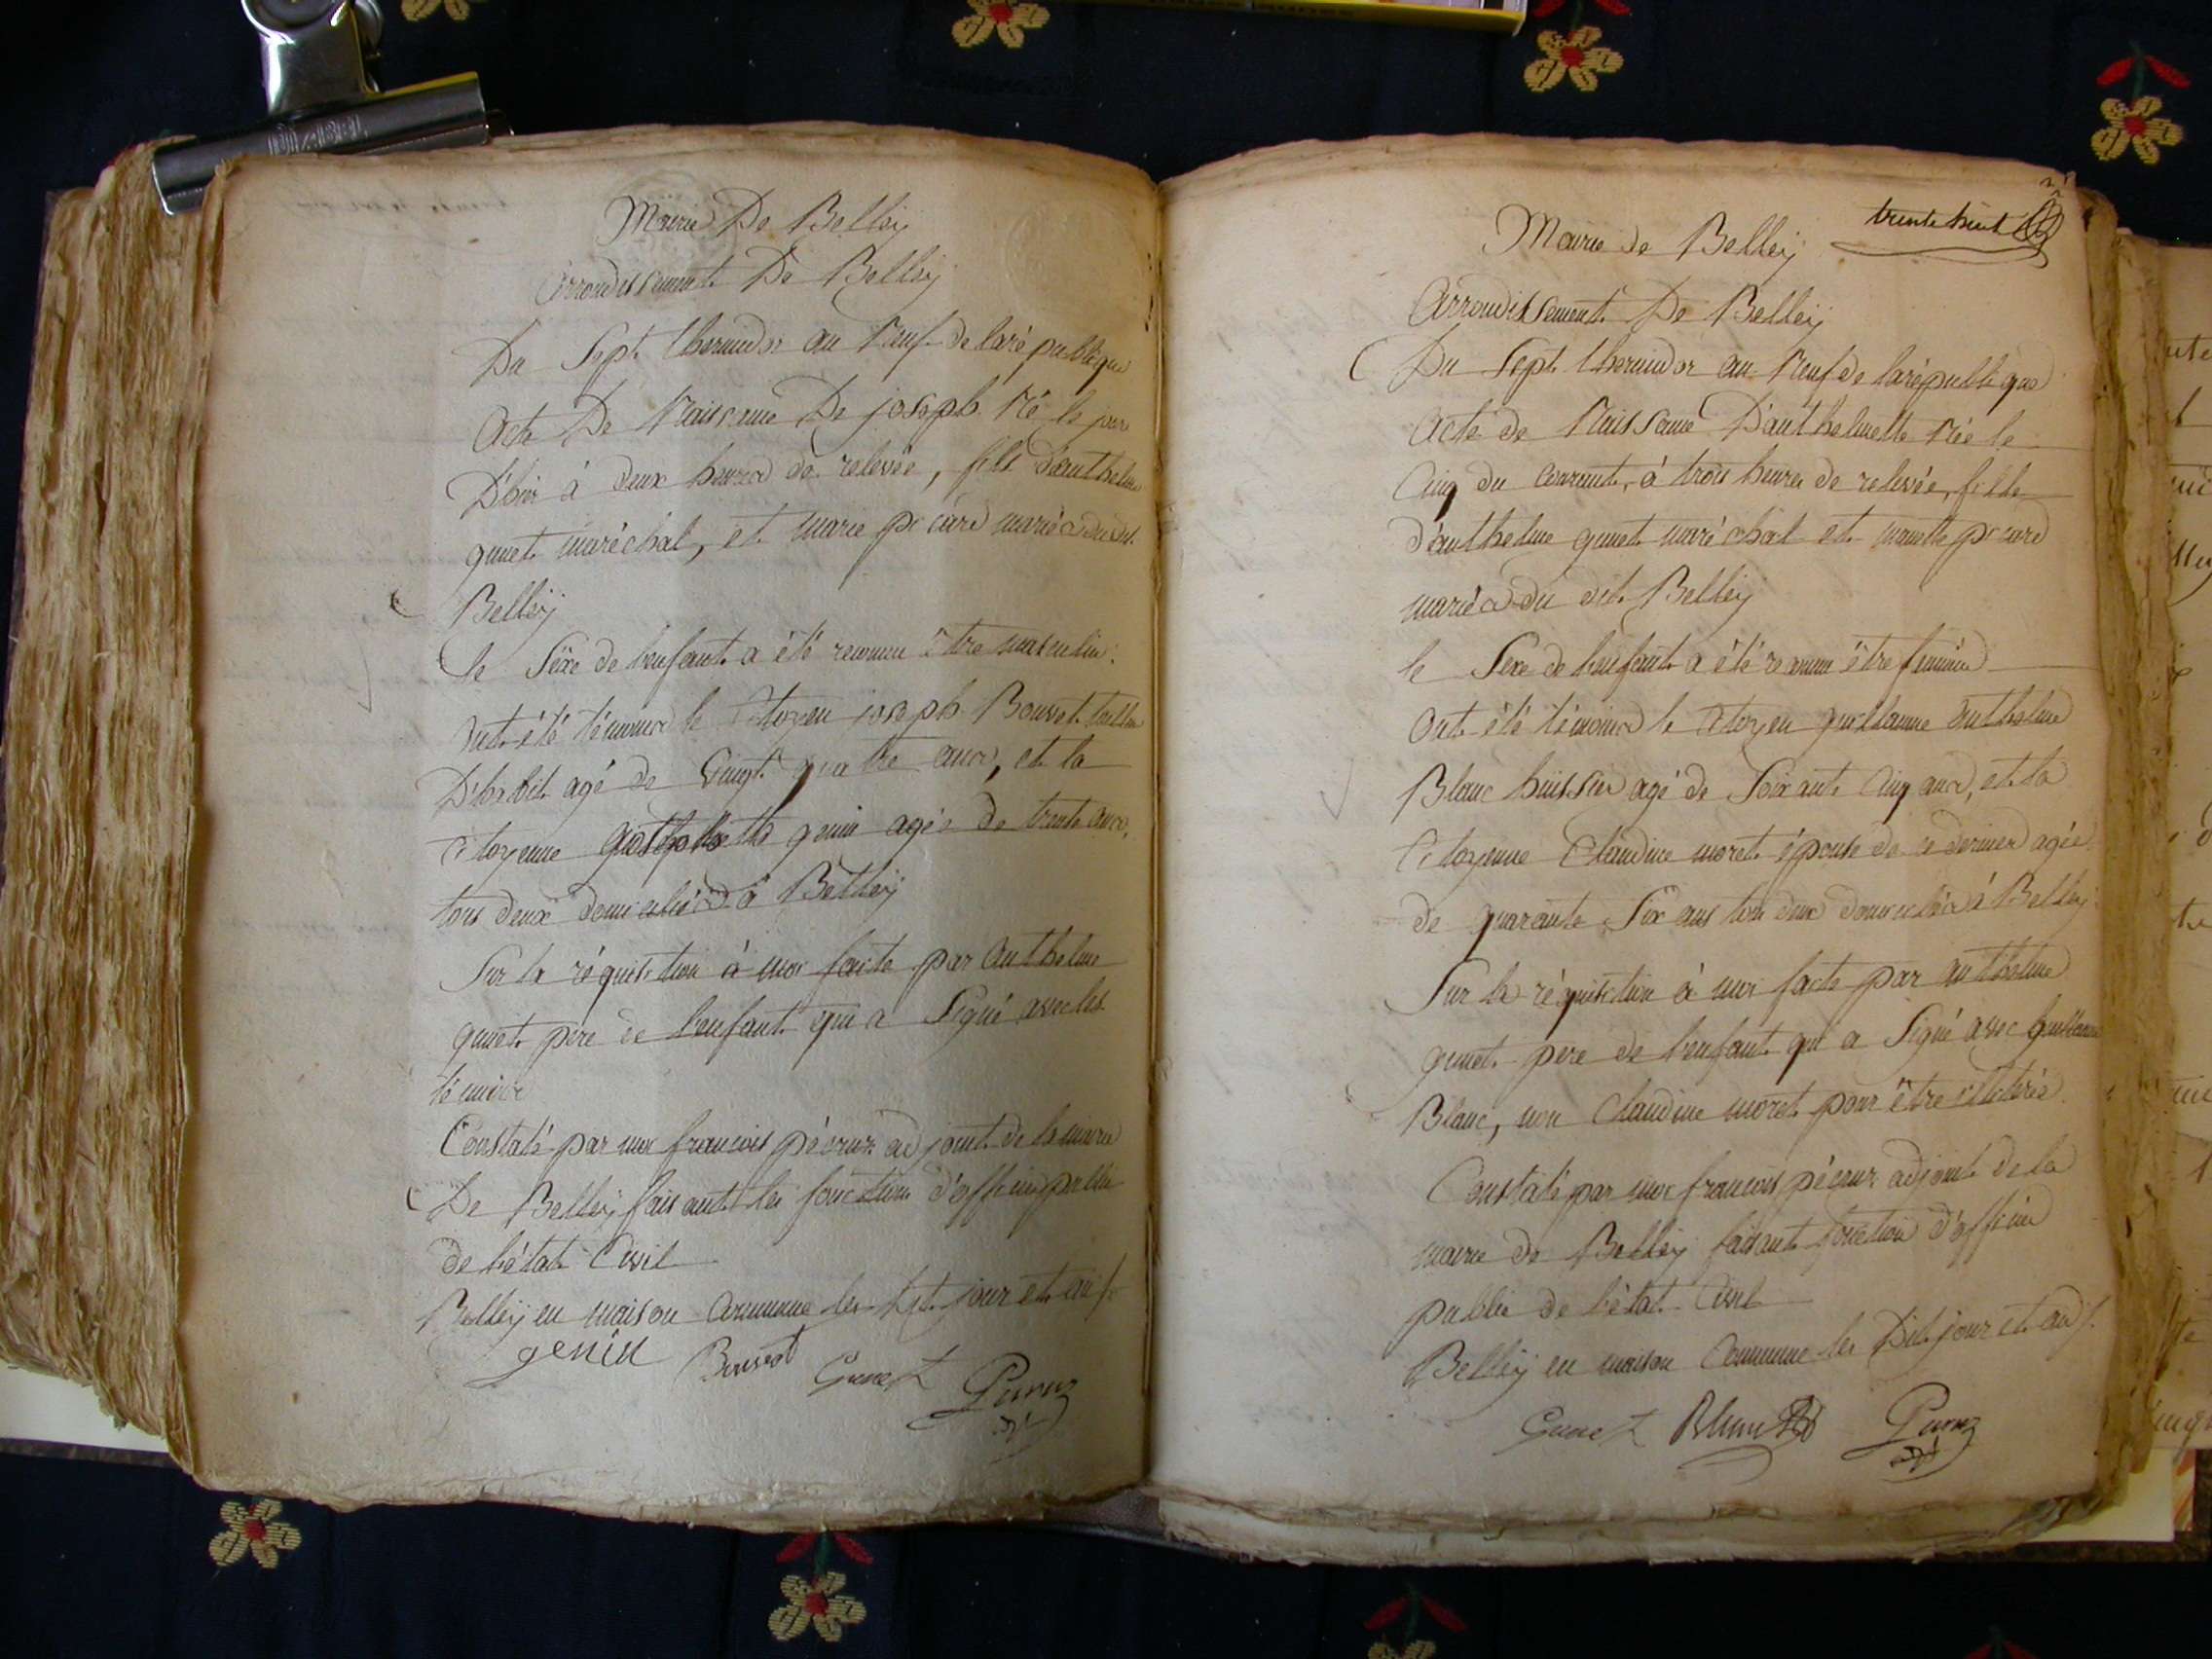 Mairie De Belleÿ
Arrondissement De Belleÿ
Du Sept thermidor an Neuf de la république
Acte De Naissance De joseph Né le jour
D'hier à deux heures de relevée, fils d'anthelme
gunet maréchal, et marie pécard mariés du dit
Belleÿ
le Sexe de l'enfant a été reconnu être masculin.
Ont été témoins le Citoyen joseph Bouvet tailleur
D'habit agé de Vingt quatre ans, et la
Citoyenne genin agée de trente ans,
tous deux domiciliés à Belleÿ
Sur la réquisition à moi faite par Anthelme
gunet pere de l'enfant qui a Signé avec les
témoins
Constaté par moi francois pécruz adjoint de la mairie
De Belleÿ faisant les fonctions d'officier public
de l'état Civil
Belleÿ en maison Commune les dit jour et an
genin Bouvet Gunet
trente huit
Mairie de Belleÿ
Arrondissement De Belleÿ
Du Sept thermidor an Neuf de la république
Acte de Naissance D'anthelmette Née le
Cinq du courrant, à trois heures de relevée, fille
d'anthelme gunet maréchal et mariette pécard
mariés du dit Belleÿ
le Sexe de l'enfant a été reconnu être feminin
Ont été témoins le Citoyen guillaume Anthelme
Blanc huissier agé de Soixante Cinq ans, et la
Citoyenne Claudine moret épouse de ce dernier agée
de quarante Six ans tous deux domiciliés à Belleÿ
Sur la réquisition à moi faite par anthelme
gunet pere de l'enfant qui a Signé avec guillaume
Blanc, non Claudine moret pour être illitérée.
Constaté par moi francois pécruz adjoint de la
mairie de Belleÿ faisant fonction d'officier
public de l'état Civil
Belleÿ en maison Commune les Dit jour et an
Gunet Blanc